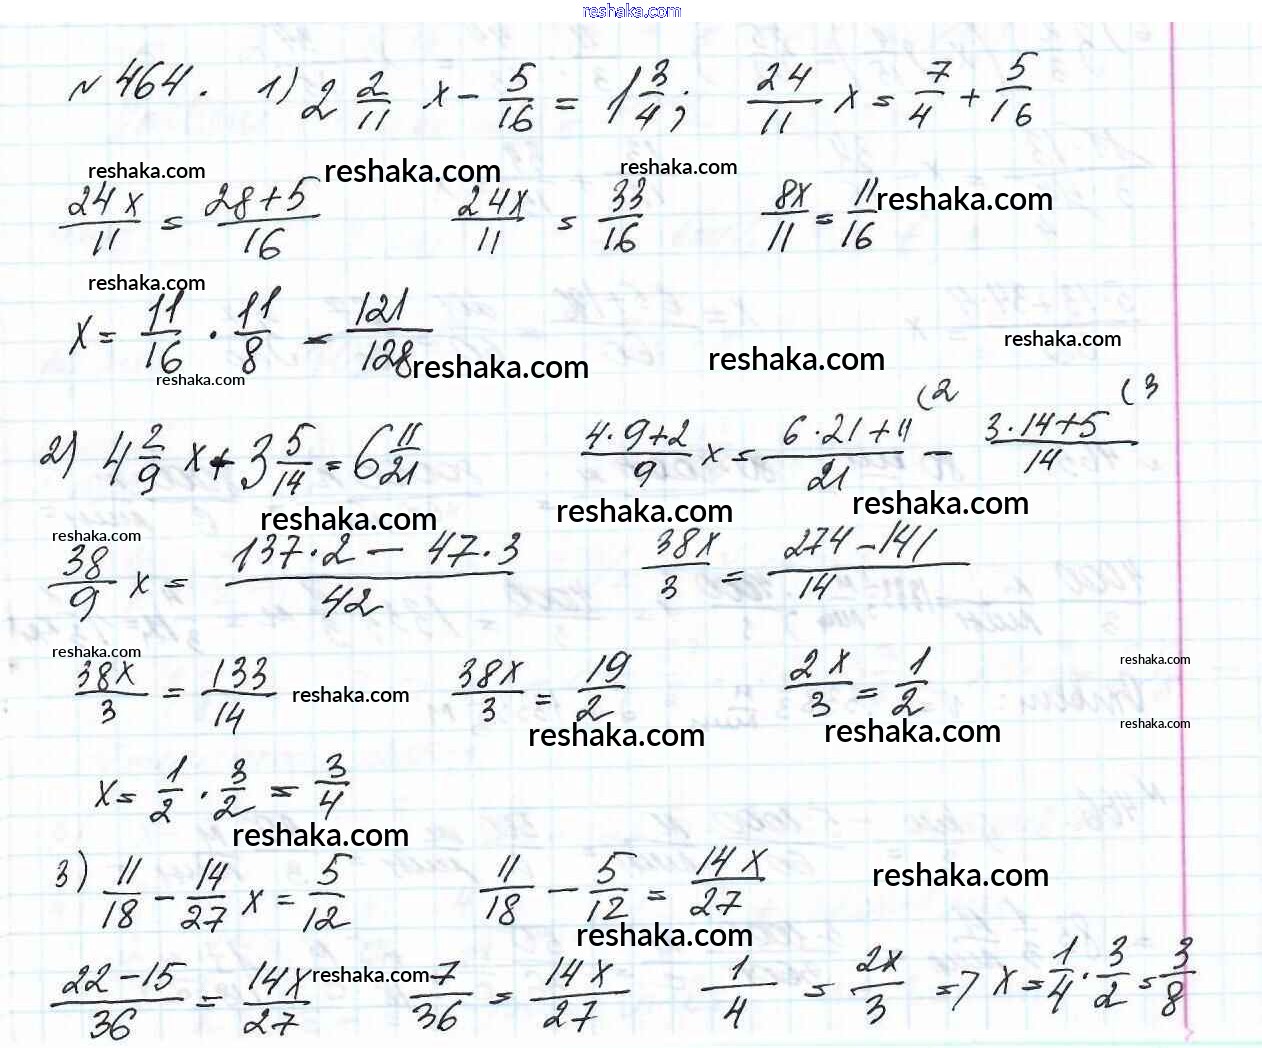 reshaka.com
№ 464. 1) 2 2/11 x - 5/16 = 1 3/4; 24/11 x = 7/4 + 5/16
reshaka.com reshaka.com reshaka.com
24x/11 = 28+5/16 24x/11 = 33/16 8x/11 = 11/16 reshaka.com
reshaka.com
x = 11/16 · 11/8 = 121/128 reshaka.com reshaka.com reshaka.com
reshaka.com
2) 4 2/9 x + 3 5/14 = 6 11/21 4·9+2/9 x = 6·21+11/21 (2 - 3·14+5/14 (3
reshaka.com reshaka.com reshaka.com
reshaka.com
38/9 x = 137·2 - 47·3/42 38x/3 = 274-141/14
reshaka.com reshaka.com
38x/3 = 133/14 reshaka.com 38x/3 = 19/2 2x/3 = 1/2
reshaka.com reshaka.com reshaka.com
x = 1/2 · 3/2 = 3/4
reshaka.com
3) 11/18 - 14/27 x = 5/12 11/18 - 5/12 = 14x/27 reshaka.com
reshaka.com
22-15/36 = 14x/27 reshaka.com 7/36 = 14x/27 1/4 = 2x/3 => x = 1/4 · 3/2 = 3/8